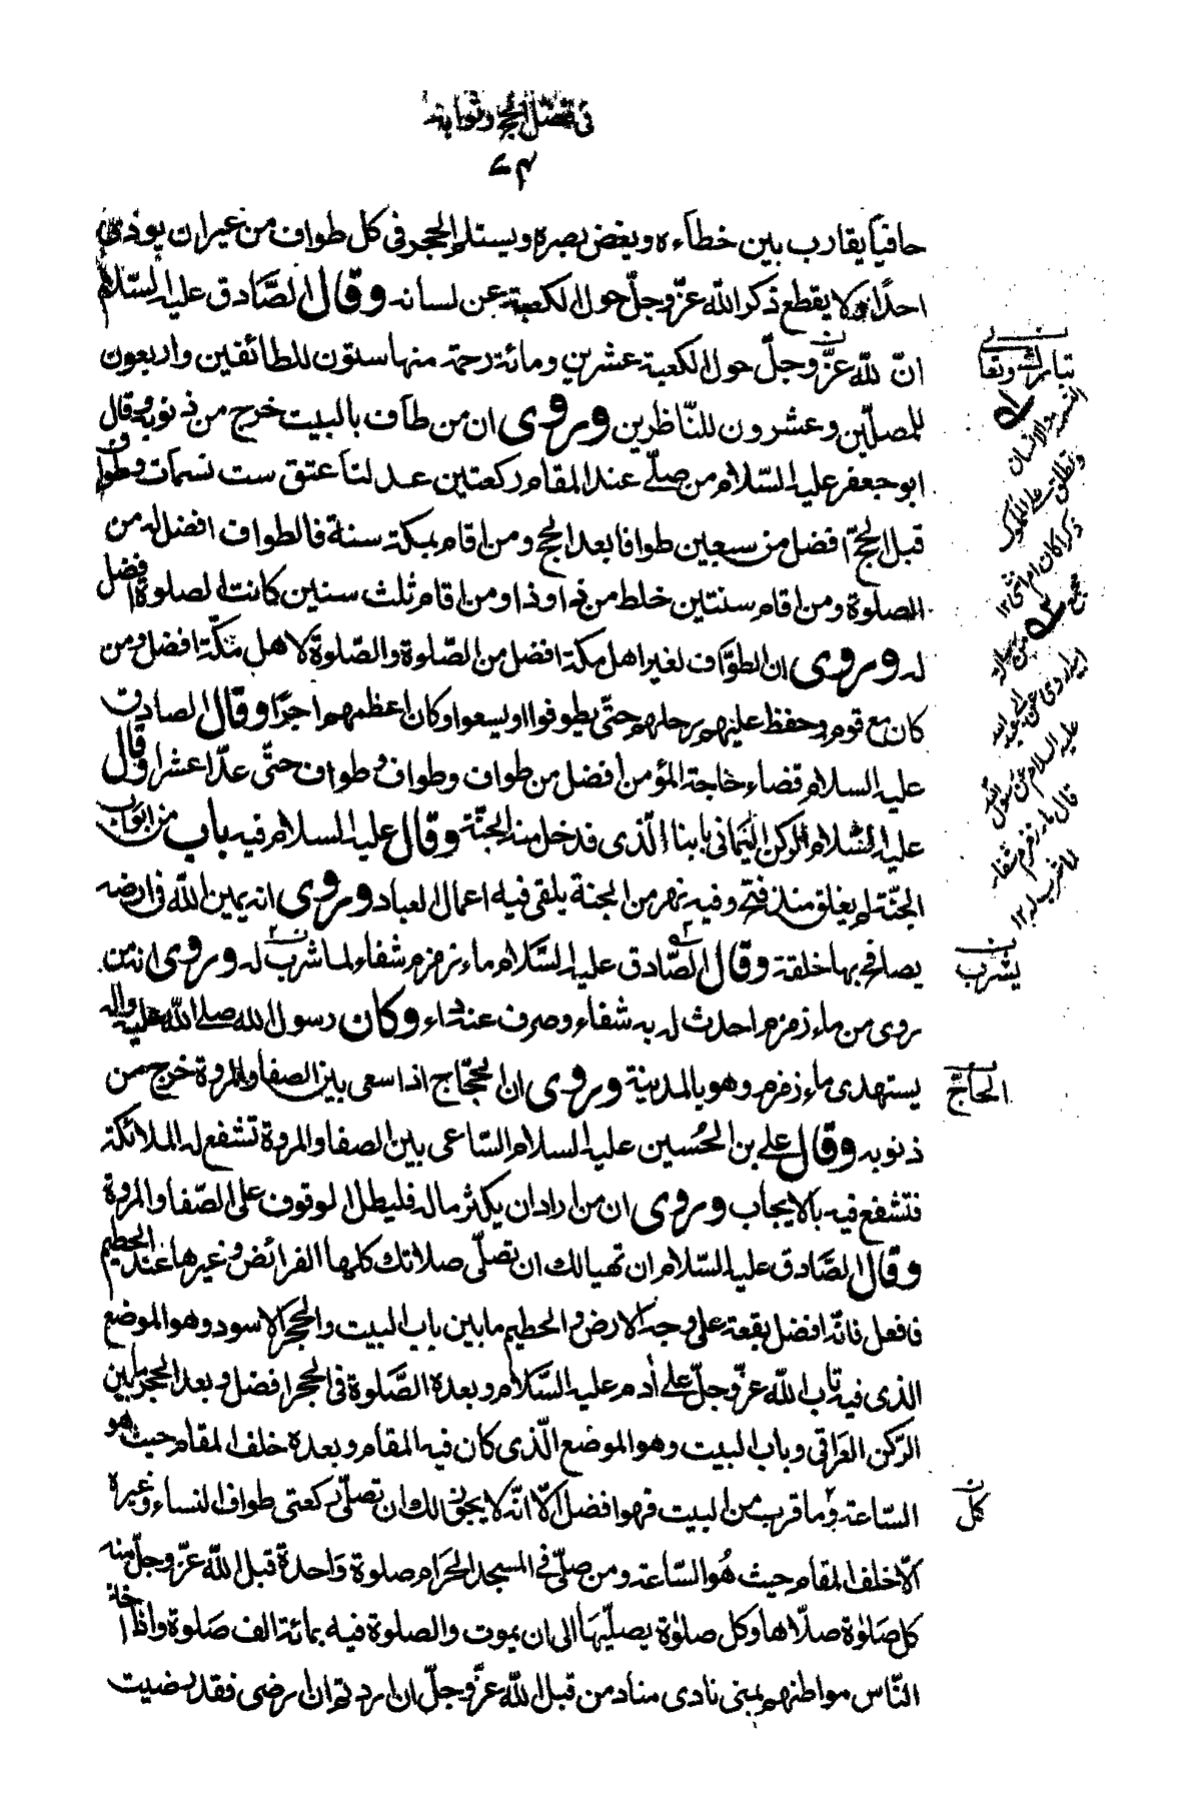 في فضل الحج وثوابه
٧٤
حافياً يقارب بين خطاءه ويغض بصره ويستلم الحجر في كل طواف من غير ان يوذى
احدًا ولا يقطع ذكر الله عزّ وجلّ حول الكعبة عن لسانه وقال الصَّادق عليه السّلام
انّ لله عزّ وجلّ حول الكعبة عشرين ومائة رحمة منها ستون للطائفين واربعون
للمصلّين وعشرون للنّاظرين وروى ان من طاف بالبيت خرج من ذنوبه وقال
ابو جعفر عليه السّلام من صلّى عند المقام ركعتين عدلتا عتق ست نسمات وطواف
قبل الحجّ افضل من سبعين طوافا بعد الحج ومن اقام بمكة سنة فالطواف افضل له من
الصلوة ومن اقام سنتين خلط من ذا وذا ومن اقام ثلث سنين كانت الصلوة افضل
له وروى ان الطوّاف لغير اهل مكة افضل من الصّلوة والصّلوة لاهل مكّة افضل ومن
كان مع قوم وحفظ عليهم رحلهم حتّى يطوفوا او يسعوا كان اعظمهم اجرًا وقال الصادق
عليه السلام قضاء حاجة المؤمن افضل من طواف وطواف وطواف حتّى عدّ عشرا وقال
عليه السّلام الركن اليماني بابنا الّذى ندخل منه الجنّة وقال عليه السلام فيه باب من ابواب
الجنّة لم يغلق منذ فتح وفيه نهر من الجنة يلقى فيه اعمال العباد وروى انه يمين الله في ارضه
يصافح بها خلقه وقال الصّادق عليه السَّلام ماء زمزم شفاء لما شرب له وروى انه من
روى من ماء زمزم احدث له به شفاء وصرف عنه داء وكان رسول الله صلى الله عليه واله
يستهدى ماء زمزم وهو بالمدينة وروى ان الحجّاج اذا سعى بين الصفا والمروة خرج من
ذنوبه وقال علي بن الحُسين عليه السلام السّاعى بين الصفا والمروة تشفع له الملائكة
فتشفع فيه بالايجاب وروى ان من اراد ان يكثر ماله فليطل الوقوف على الصّفا والمروة
وقال الصَّادق عليه السّلام ان تهيا لك ان تصلّى صلاتك كلها الفرائض وغيرها عند الحطيم
فافعل فانّه افضل بقعة على وجه الارض والحطيم ما بين باب البيت والحجر الاسود وهو الموضع
الذى فيه تاب الله عزّ وجلّ على أدم عليه السَّلام وبعده الصَّلوة في الحجر افضل وبعد الحجر ما بين
الرّكن العراقي وباب البيت وهو الموضع الّذى كان فيه المقام وبعده خلف المقام حيث هو
السّاعة وما قرب من البيت فهو افضل الّا انّه لا يجوز لك ان تصلّى ركعتى طواف النساء وغيره
الّا خلف المقام حيث هُو السّاعة ومن صلّى في المسجد الحرام صلوة واحدة قبل الله عزّ وجلّ منه
كل صلوة صلّاها وكل صلوة يصلّيها الى ان يموت والصلوة فيه بمائة الف صَلوة واذا اخذ
النّاس مواطنهم بمنى نادى مناد من قبل الله عزّ وجلّ ان اردتم ان ارضى فقد رضيت
النسمة الانسان
وتطلق على المملوك
ذكرا كان ام انثى ١٢
مجمع
روى عن ابي عبد الله
عليه السلام عن رسول الله
قال ماء زمزم شفاء
لما شرب له ١٢
يشرب
الحاجّ
كلّ